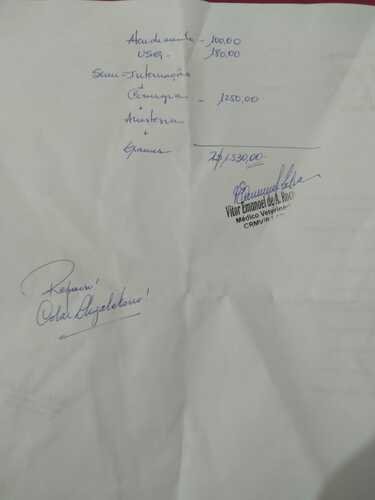 Atendimento - 100,00
USG - 180,00
Semi-Internação
+
Cirurgia - 1250,00
+
Anestesia
+
Exames
1.530,00
Vitor Emanoel de A. Roc
Médico Veterin
CRMV/R
Requer!
Colar Elizabetano!